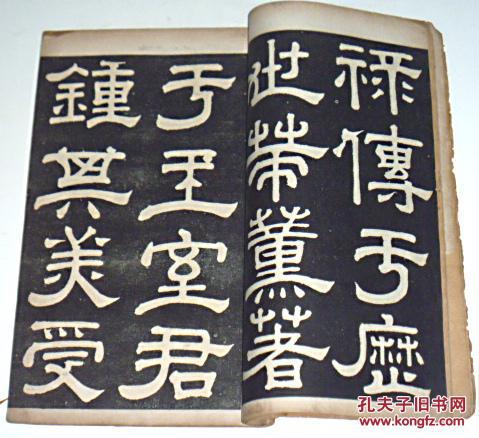 祿傳于歷
世策薰著
于王室君
鍾其美受
孔夫子旧书网
kongfz.com